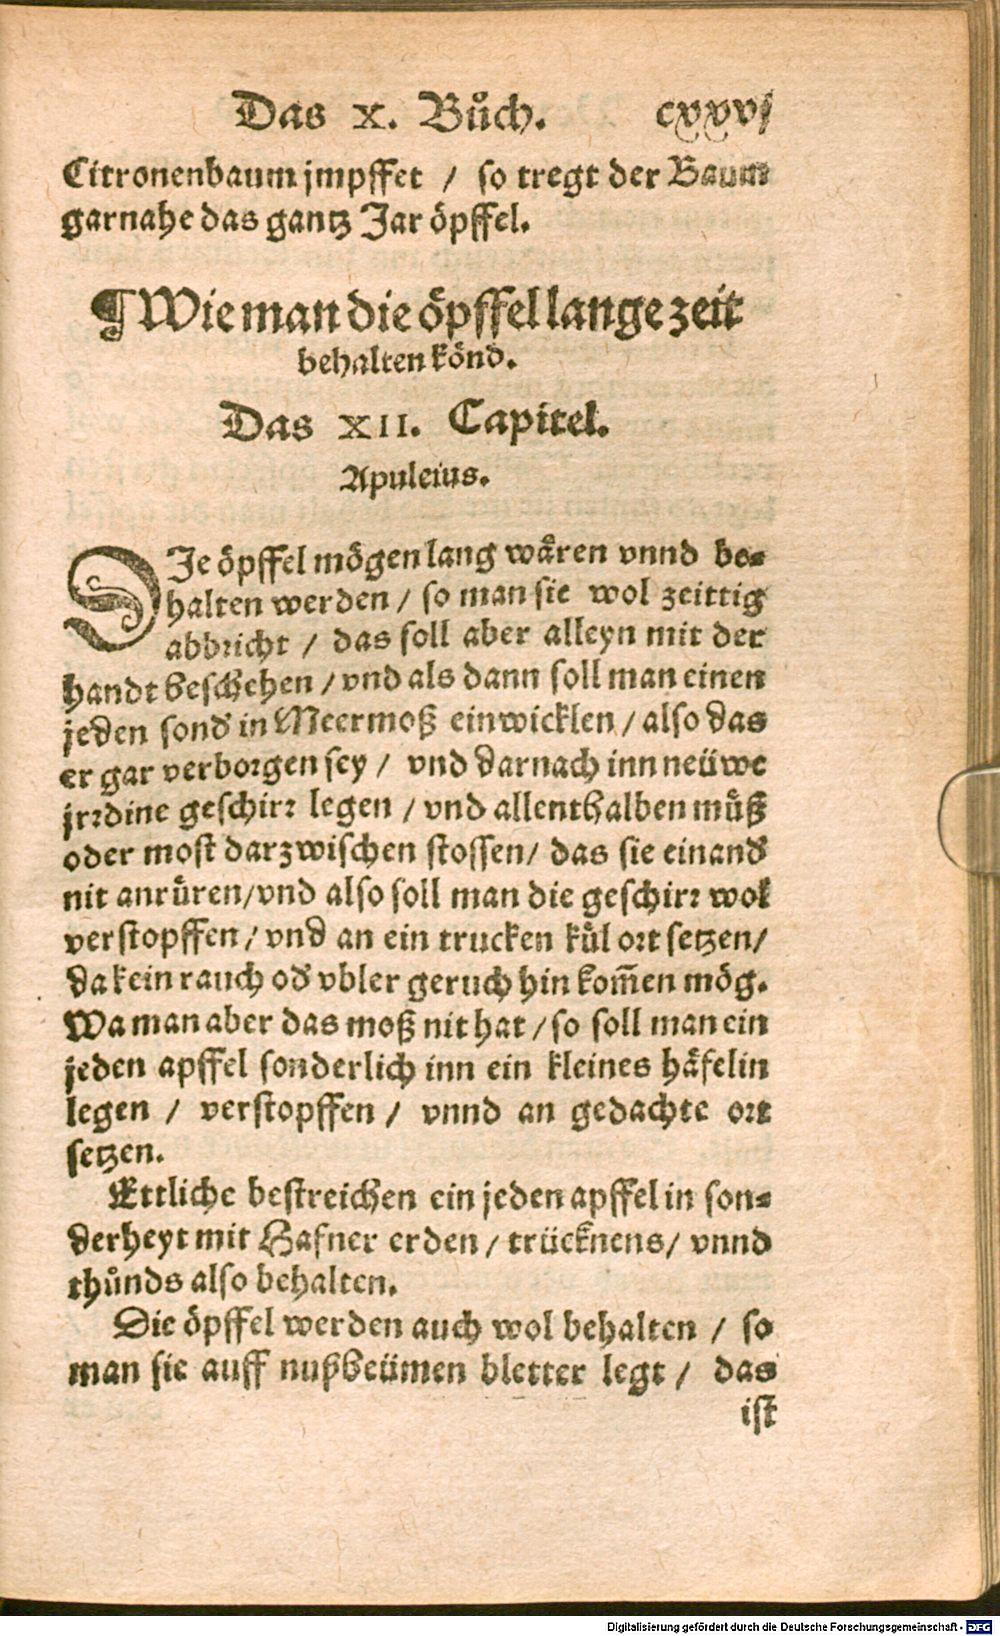 Das X. Bůch. cxxvj
Citronenbaum jmpffet / so tregt der Baum
garnahe das gantz Jar öpffel.
¶ Wie man die öpffel lange zeit
behalten könd.
Das XII. Capitel.
Apuleius.
DJe öpffel mögen lang wåren vnnd be⸗
halten werden / so man sie wol zeittig
abbricht / das soll aber alleyn mit der
handt beschehen / vnd als dann soll man einen
jeden sond̕ in Meermoß einwicklen / also das
er gar verborgen sey / vnd darnach inn neüwe
jrrdine geschirr legen / vnd allenthalben müß
oder most darzwischen stossen / das sie einand̕
nit anrüren / vnd also soll man die geschirr wol
verstopffen / vnd an ein trucken kül ort setzen /
da kein rauch od̕ vbler geruch hin kom̄en mög.
Wa man aber das moß nit hat / so soll man ein
jeden apffel sonderlich inn ein kleines håfelin
legen / verstopffen / vnnd an gedachte ort
setzen.
Ettliche bestreichen ein jeden apffel in son⸗
derheyt mit Hafner erden / trücknens / vnnd
thůnds also behalten.
Die öpffel werden auch wol behalten / so
man sie auff nußbeümen bletter legt / das
ist
Digitalisierung gefördert durch die Deutsche Forschungsgemeinschaft - DFG